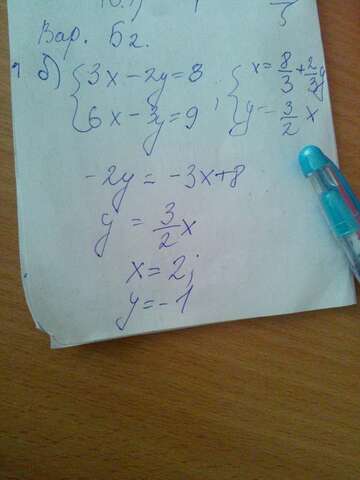 Вар. Б2.
б) { 3x - 2y = 8
6x - 3y = 9 ; { x = 8/3 + 2/3 y
y - 3/2 x
-2y = -3x+8
y = 3/2 x
x = 2;
y = -1